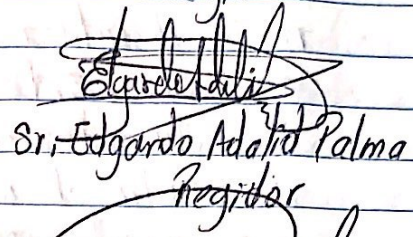 Edgardo Adalid
Sr. Edgardo Adalid Palma
Regidor